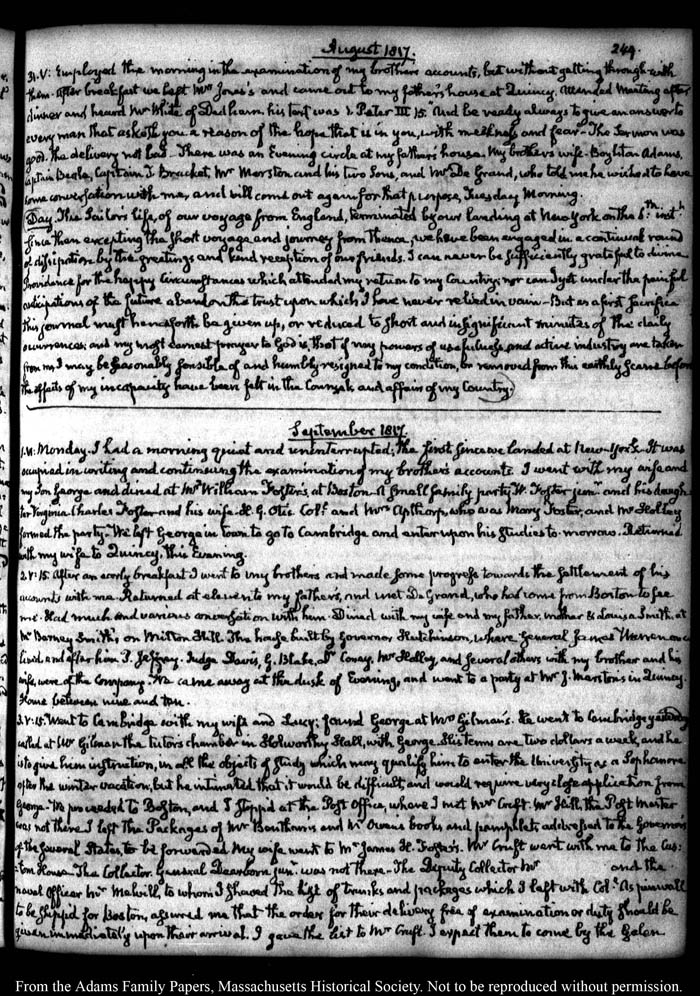 August 1817.
249.
31. V: Employed the morning in the examination of my brothers accounts, but without getting through with
them. After breakfast we left Mrs Jones's and came out to my father's house at Quincy. Attended Meeting after
dinner and heard Mr White of Dedham. his text was 1. Peter III. 15. "And be ready always to give an answer to
every man that asketh you a reason of the hope that is in you, with meekness and fear-The Sermon was
good. the delivery not bad. There was an Evening circle at my father's house. My brother's wife- Boylston Adams,
Captain Beale, Captain T. Bracket, Mr Marston and his two Sons, and Mr De Grand, who told me he wished to have
some conversation with me, and will come out again for that purpose, Tuesday Morning.
Day. The Sailor's life, of our voyage from England, terminated by our landing at New York on the 6th. inst.
Since then excepting the short voyage and journey from thence, we have been engaged in a continual round
of dissipation by the greetings and kind reception of our friends. I can never be sufficiently grateful to divine
Providence for the happy Circumstances which attended my return to my Country; nor can I yet under the painful
anticipations of the future abandon the trust upon which I have never relied in vain-But as a first Sacrifice
this journal must henceforth be given up, or reduced to short and insignificant minutes of the daily
occurrences; and my most earnest prayer to God is, that if my powers of usefulness and active industry are taken
from me, I may be seasonably sensible of and humbly resigned to my condition, or removed from this earthly Scene before
the effects of my incapacity have been felt in the Counsels and affairs of my Country.
September 1817.
1. VI: Monday. I had a morning quiet and uninterrupted; the first since we landed at New-York. It was
occupied in writing and continuing the examination of my brother's accounts. I went with my wife and
my Son George and dined at Mr William Foster's, at Boston. A small family party W. Foster junr. and his daugh-
ter Virginia Charles Foster and his wife H. G. Otis Colt. and Mrs Apthorp, who was Mary Foster, and Mr Holley
formed the party. We left George in town to go to Cambridge and enter upon his studies to-morrow. Returned
with my wife to Quincy, this Evening.
2. V: 15. After an early breakfast I went to my brothers and made some progress towards the settlement of his
accounts with me. Returned at eleven to my father's, and met De Grand, who had come from Boston to see
me. Had much and various conversation with him. Dined with my wife and my father, mother & Louisa Smith, at
Mr Barney Smith's, on Milton Hill. The house built by Governor Hutchinson, where General James Warren once
lived, and after him P. Jeffray. Judge Davis, G. Blake, Conay, Mr Holley, and several others with my brother and his
wife, were of the Company. We came away at the dusk of Evening, and went to a party at Mr J. Marston's in Quincy.
Home between nine and ten.
3. V: 15. Went to Cambridge with my wife and Lucy; found George at Mr Gilman's. He went to Cambridge yesterday
called at Mr Gilman the tutors chamber in Holworthy Hall, with George. His terms are two dollars a week, and he
is to give him instruction, in all the objects of study which may qualify him to enter the University as a Sophomore
after the winter vacation, but he intimated that it would be difficult, and would require very close application from
George. We proceeded to Boston, and I stopped at the Post Office, where I met Mr Cruft. Mr Hill, the Post Master
was not there I left the Packages of Mr Bentham's and Mr Owens books and pamphlets, addressed to the Governors
of the several States, to be forwarded My wife went to Mr James H. Foster's. Mr Cruft went with me to the Cus:
tom House. The Collector. General Dearborn junr. was not there-The Deputy Collector Mr and the
naval Officer Mr Melvill, to whom I shewed the list of trunks and packages which I left with Colt. Aspinwall
to be shipped for Boston, assured me that the order for their delivery free of examination or duty should be
given immediately upon their arrival. I gave the list to Mr Cruft. I expect them to come by the Galen
From the Adams Family Papers, Massachusetts Historical Society. Not to be reproduced without permission.